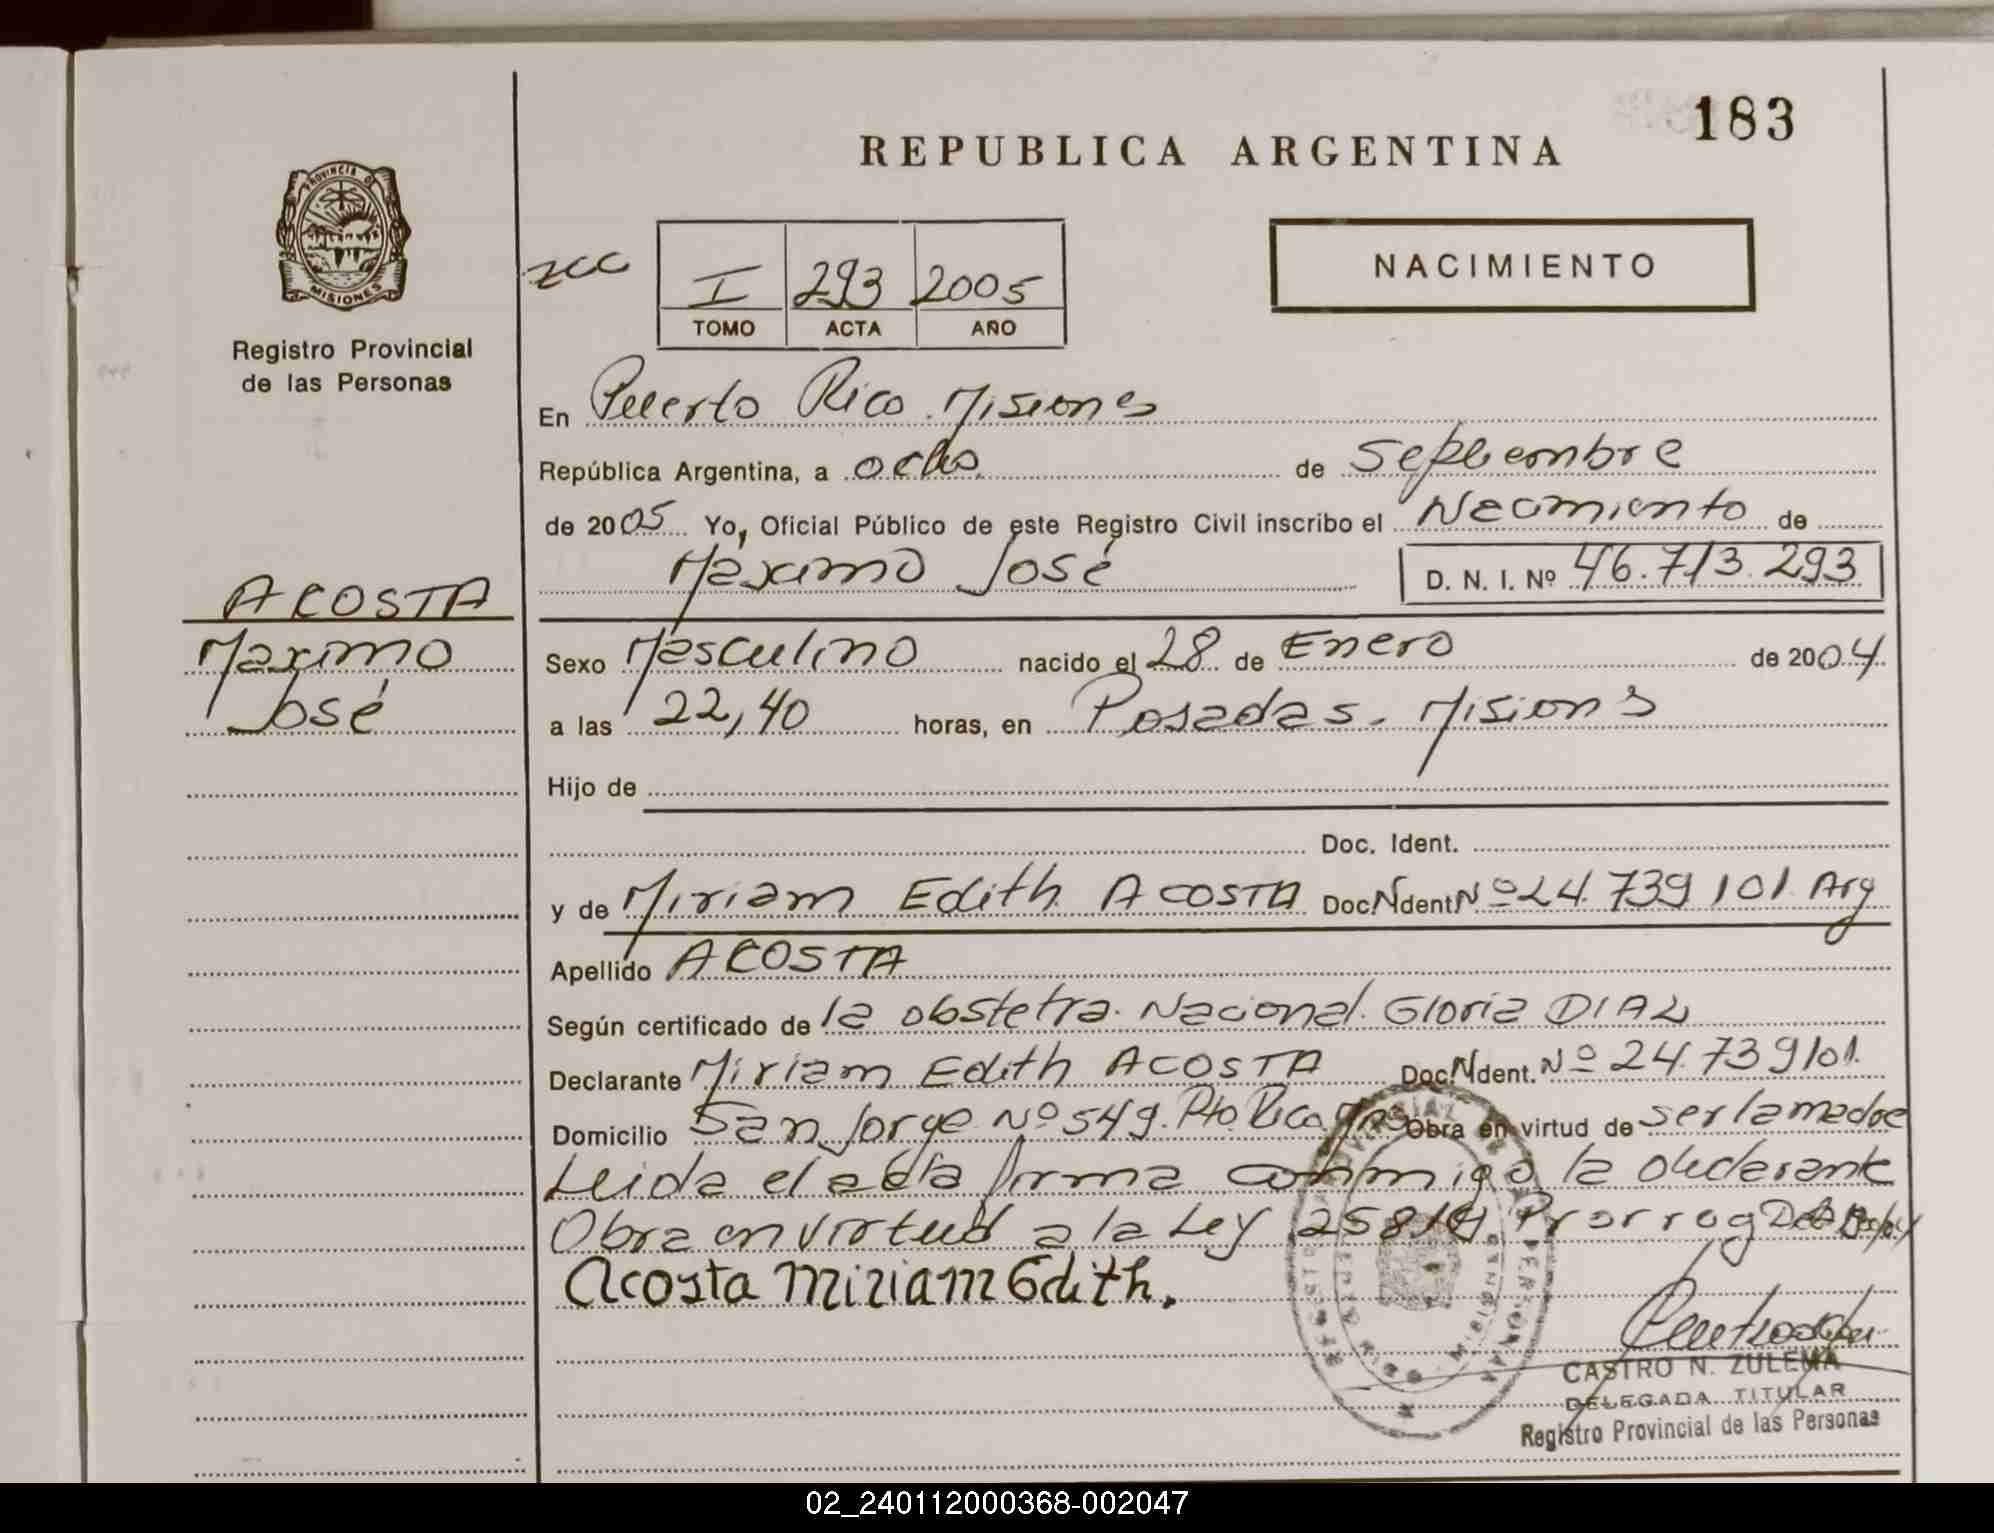 183
REPUBLICA ARGENTINA
PROVINCIA DE
MISIONES
Registro Provincial
de las Personas
NACIMIENTO
I 293 2005
TOMO ACTA AÑO
En Puerto Rico. Misiones
República Argentina, a ocho de Septiembre
de 2005 Yo, Oficial Público de este Registro Civil inscribo el Nacimiento de
Maximo José D. N. I. Nº 46.713.293
ACOSTA
Maximo
José
Sexo Masculino nacido el 28 de Enero de 2004
a las 22,40 horas, en Posadas. Misiones
Hijo de
Doc. Ident.
y de Miriam Edith ACOSTA Doc. Ident Nº 24.739101 Arg
Apellido ACOSTA
Según certificado de la obstetra. Nacional. Gloria DIAZ
Declarante Miriam Edith ACOSTA Doc. Ident. Nº 24.739101.
Domicilio San Jorge Nº 549. Pto Rico. Mnes Obra en virtud de ser la madre
Leida el acta firma conmigo la declarante
Obra en virtud a la Ley 25819 Prorrog
Acosta Miriam Edith.
CASTRO N. ZULEMA
DELEGADA TITULAR
Registro Provincial de las Personas
02_240112000368-002047